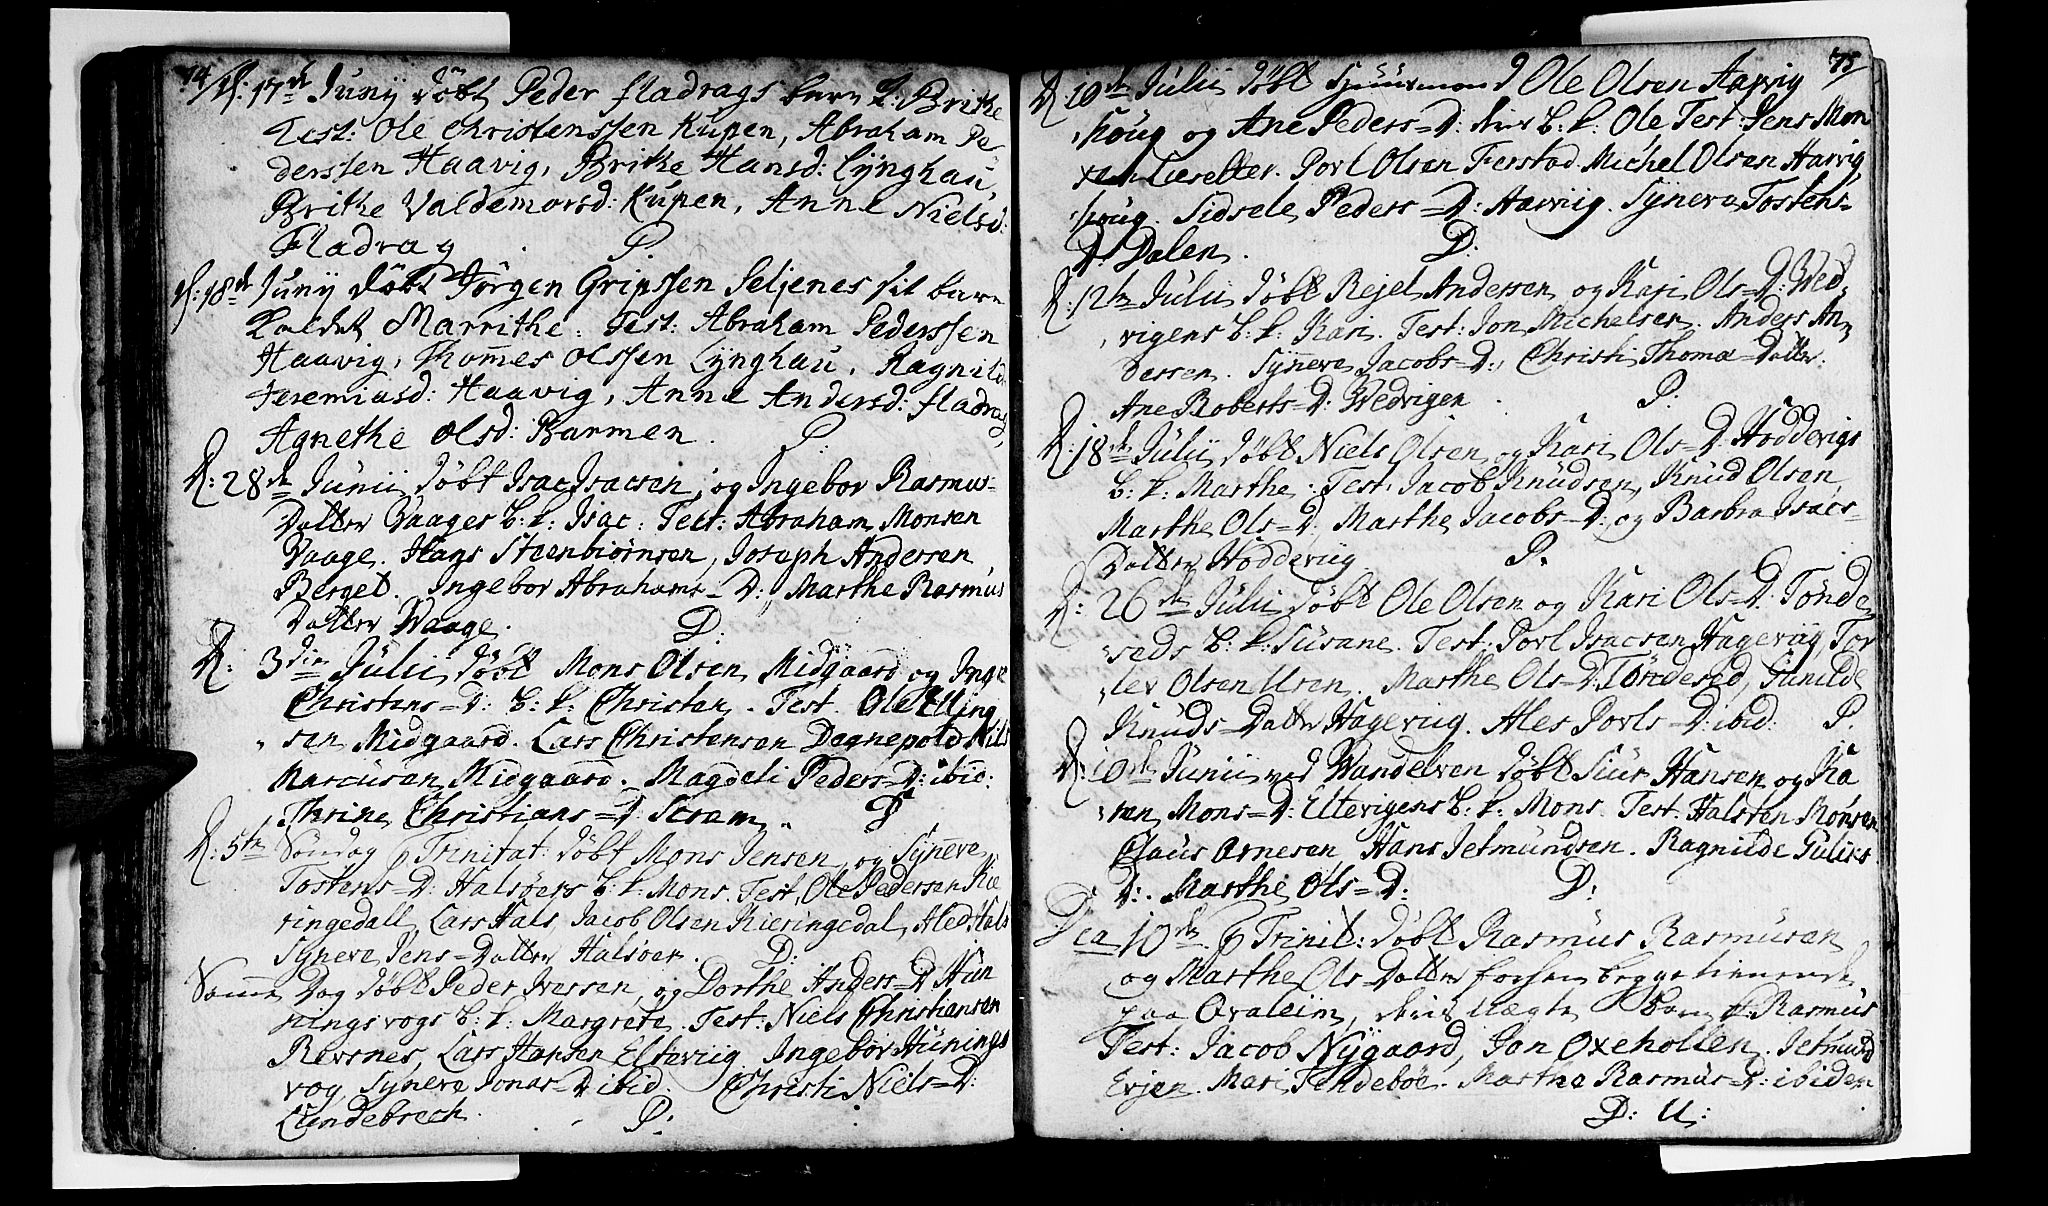 74
d: 17de Juny döbt Peder fladrags barn k: Brithe
Test: Ole Christenssen Kupen, Abraham Pe
derssen Haavig, Brithe Hansd: Lÿnghau
Brithe Valdemorsd: Kupen, Anne Nielsd:
Fladrag. P.
d: 18de Juny döbt Jörgen Gripssen Seljenes sit barn
kaldet Marrithe. Test: Abraham Pederssen
Haavig, Thomes Olssen Lÿnghau, Ragnild
Jeremiasd: Haavig, Anne Andersd: fladrag,
Agnethe Olsd: Barmen. P.
D: 28de Junii döbt Isac Isacsen, og Ingebor Rasmus-
Datter Vaages b: k: Isac: Test: Abraham Monsen
Vaage. Hans Steenbiørnsen, Joseph Andersen
Berget. Ingebor Abrahams-D:, Marthe Rasmus
Datter Waage. D:
D: 3die Julii döbt Mons Olsen Midgaard og Inge
Christens=D: b: k: Christen. Test. Ole Elling
sen Midgaard. Lars Christensen Degnepold Nils
Marcusen Midgaard. Magdeli Peders=D: ibid:
Thrine Christians=D: Scram. D
D: 5te Söndag p Trinitat: döbt Mons Jensen og Sÿneve
Tostens=D: Halsöers b: k: Mons. Test. Ole Pedersen Kie
ringedall, Lars Hals, Jacob Olsen Kieringedal, Aled Hals
Syneve Jens=Datter Halsöer. D:
Samme Dag döbt Peder Iversen, og Dorthe Anders=D: Hun
ningsvogs b: k: Margrete. Test: Niels Christiansen
Revsnes, Lars Hansen Elteviig Ingebor Hunings
vog, Syneve Jonas=D ibid. Christi Niels=D:
Lundebrech. P:
75
D: 10de Julii döbt Ole Olsen Aarvig
skoug og Ane Peders=D: b: k: Ole Test: Jens Mon
sen Lesetter. Povl Olsen Ferstad. Michel Olsen Harvig
skoug. Sidsele Peders=D: Harviig. Syneva Tostens=
D: Dalen. D:
D: 12te Julii döbt Rejel Andersen og Kari Ols=D: Wed
vigens b: k: Kari. Test: Jon Michelsen. Anders An
dersen. Sÿneve Jacobs=D:, Christi Thomæ=Datter.
Ane Roberts=D: Wedvigen. P:
D: 18de Julii döbt Niels Olsen og Kari Ols=D: Hoddevigs
b: k: Marthe. Test: Jacob Knudsen, Knud Olsen,
Marthe Ols=D:, Marthe Jacobs=D: og Barbra Isacs=
Datter Hoddeviig. P.
D: 26de Julii döbt Ole Olsen og Kari Ols=D: Tönde
seds b: k: Susane. Test: Povl Isacsen Hageviig, Tor
lev Olsen Usen. Marthe Ols=D: Töndesed, Gunilde
Knuds=Datter Hageviig. Ales Povls=D: ibid: P.
D: 10de Junii ved Wandelven döbt Siur Hansen og Ka
ren Mons=D: Eltevigens b: k: Mons. Test. Halsten Rönsen
Claus Arnesen, Hans Jetmundsen. Ragnilde Guliks
D:. Marthe Ols=D: D:
Dca 10de p Trinit: döbt Rasmus Rasmusen
og Marthe Ols=Datter begge tienende
paa Ervaleim, Uægte Barn k: Rasmus
Test: Jacob Nÿgaard, Jon Oxehollen. Jetmund
Ervien. Mari Tendeböe. Marthe Rasmus=D: ibidem
D: U: